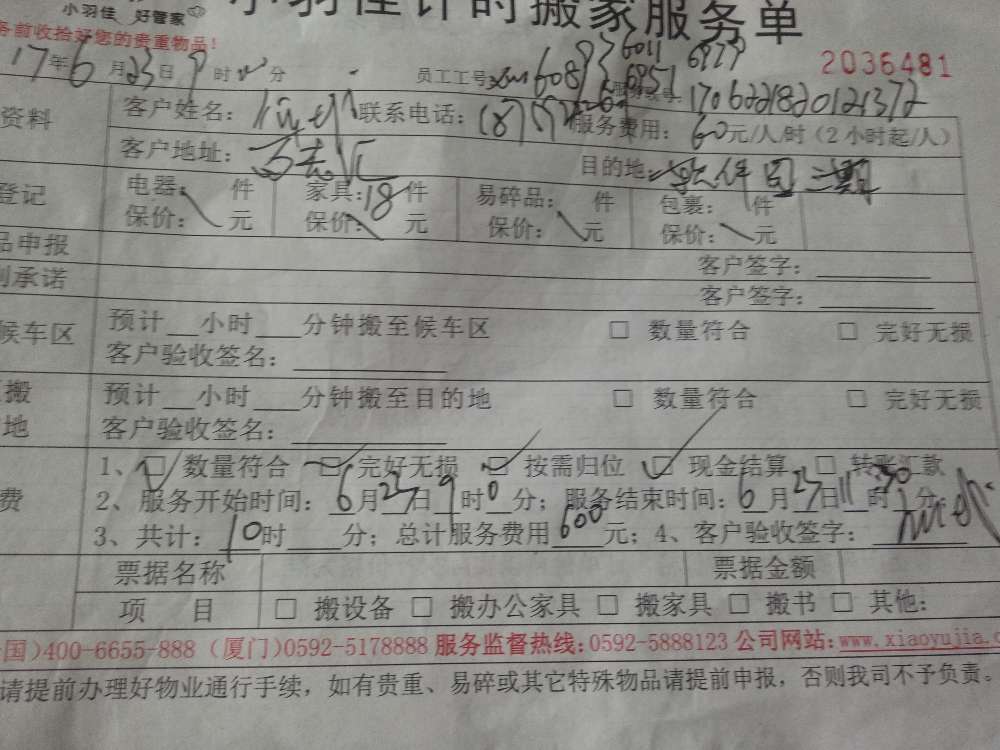 小羽佳 好管家
小羽佳计时搬家服务单
务前收拾好您的贵重物品!
2036481
17年6月23日9时 分 员工工号: 6011 6979
6083 6951
资料 客户姓名: 联系电话: 服务费用: 60元/人/时(2小时起/人)
1706221820121372
客户地址: 目的地: 软件园二期
登记 电器: 件 家具:18件 易碎品: 件 包裹: 件
保价: 元 保价: 元 保价: 元 保价: 元
品申报 客户签字:
别承诺 客户签字:
候车区 预计 小时 分钟搬至候车区 □ 数量符合 □ 完好无损
客户验收签名:
搬 预计 小时 分钟搬至目的地 □ 数量符合 □ 完好无损
地 客户验收签名:
1、☑ 数量符合 ☑ 完好无损 ☑ 按需归位 ☑ 现金结算 □ 转账汇款
费 2、服务开始时间: 6月23日9时0分; 服务结束时间: 6月23日11时30分
3、共计: 10时 分; 总计服务费用600元; 4、客户验收签字:
票据名称 票据金额
项 目 □ 搬设备 □ 搬办公家具 □ 搬家具 □ 搬书 □ 其他:
国)400-6655-888 (厦门)0592-5178888 服务监督热线:0592-5888123 公司网站:www.xiaoyujia.c
请提前办理好物业通行手续,如有贵重、易碎或其它特殊物品请提前申报,否则我司不予负责。